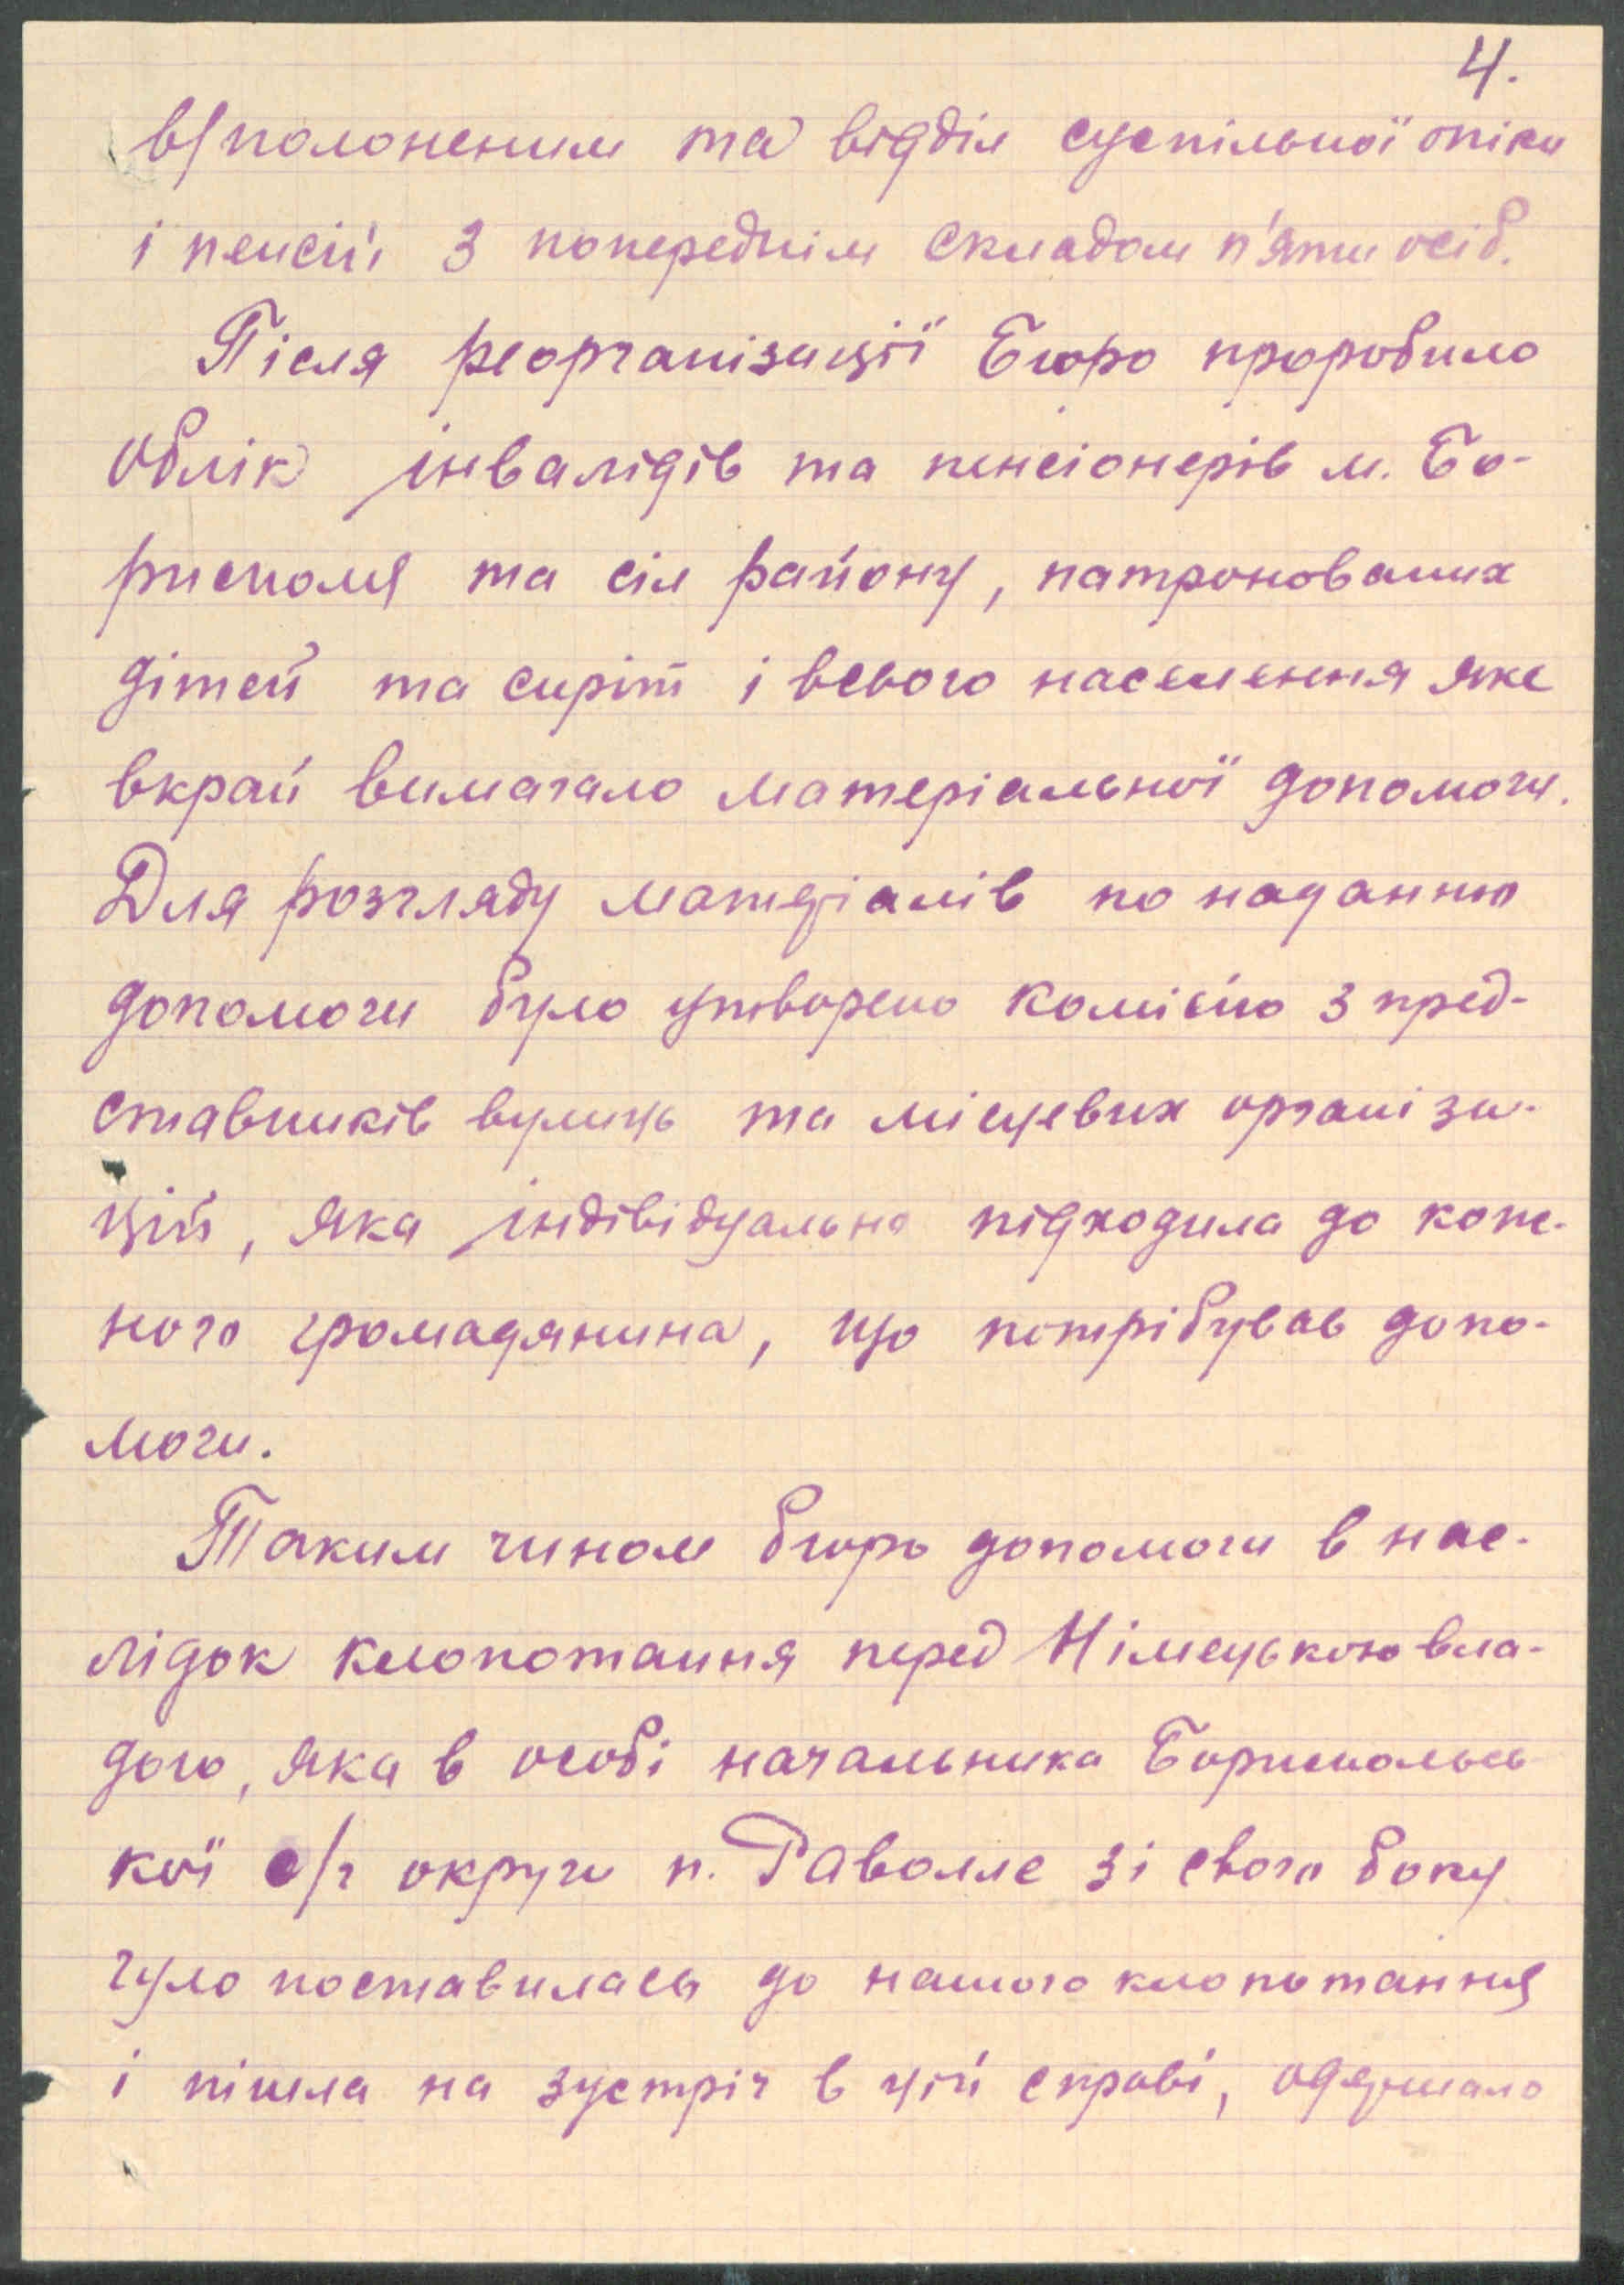 4.
в/полоненим та відділ суспільної опіки
і пенсій з попереднім складом п'яти осіб.
Після реорганізації Бюро проробило
облік інвалідів та пенсіонерів м. Бо-
рисполя та сіл району, патронованих
дітей та сиріт і всього населення яке
вкрай вимагало матеріальної допомоги.
Для розгляду матеріалів по наданню
допомоги було утворено комісію з пред-
ставників вулиць та місцевих організа-
цій, яка індівідуально підходила до кож-
ного громадянина, що потрібував допо-
моги.
Таким чином бюро допомоги в нас-
лідок клопотання перед Німецькою вла-
дою, яка в особі начальника Бориспольсь-
кої с/г округи п. Раволле зі свого боку
чуло поставилась до нашого клопотання
і пішла на зустріч в цій справі, одержало